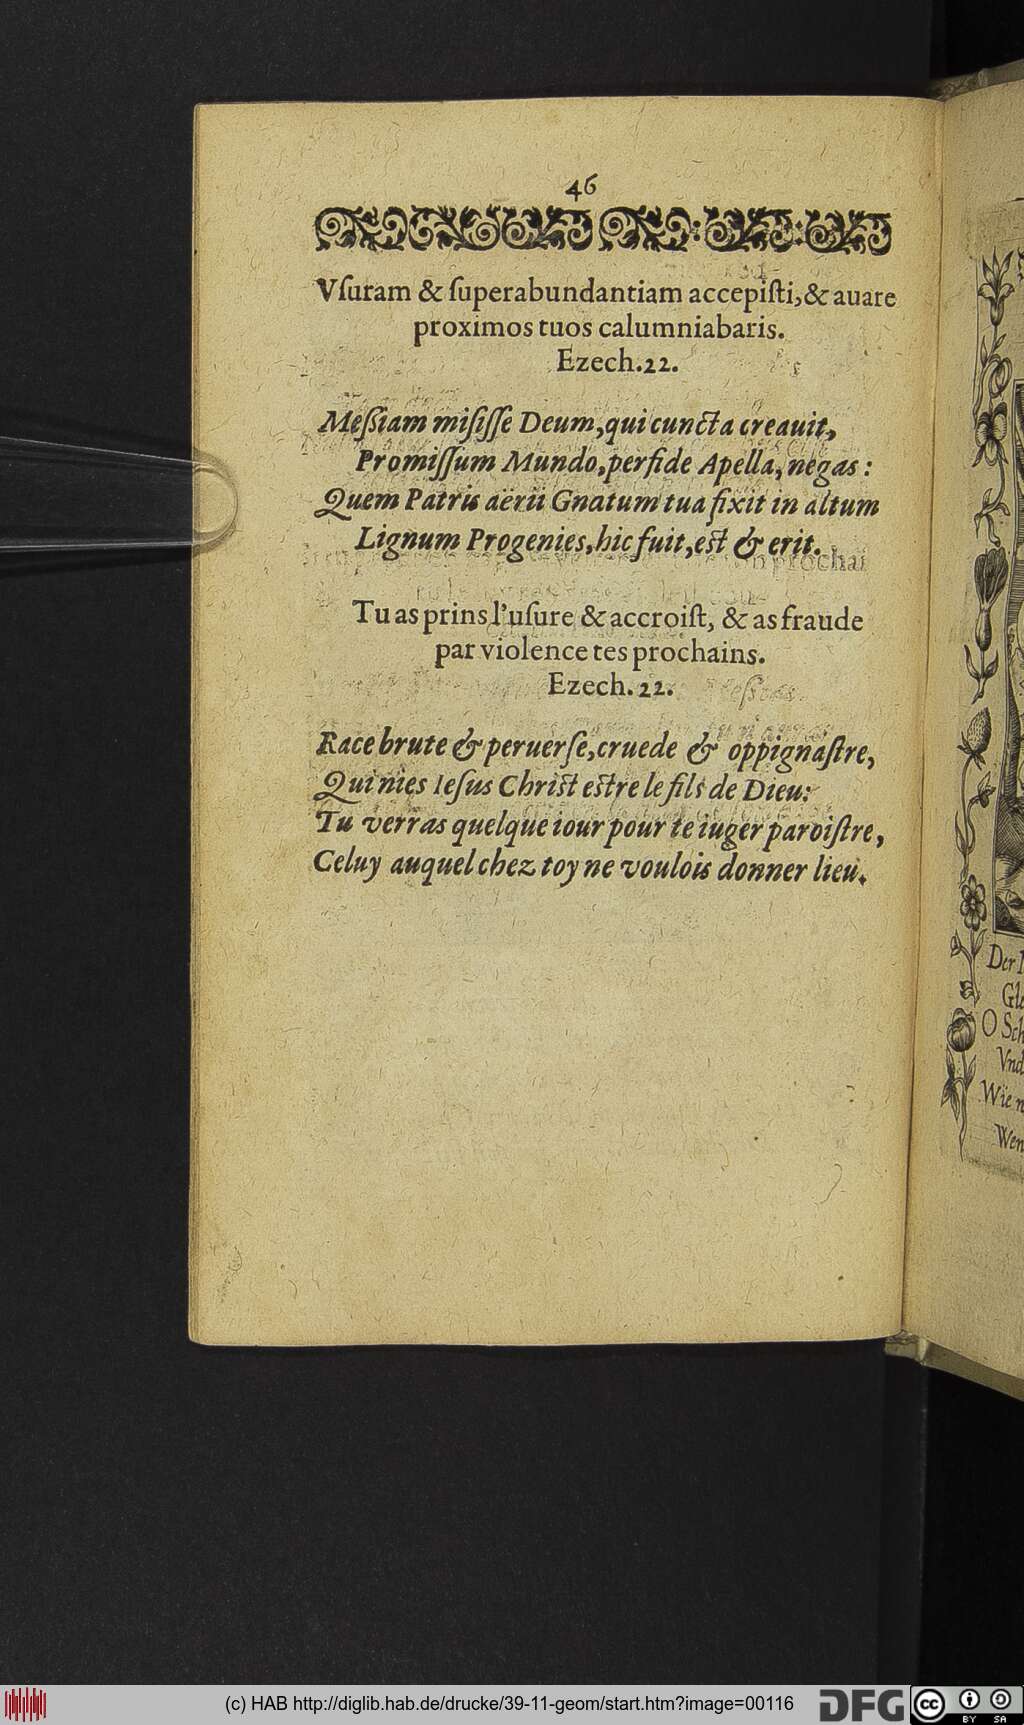 46
Vſuram & ſuperabundantiam accepiſti, & auare
proximos tuos calumniabaris.
Ezech. 22.
Meſſiam miſiſſe Deum, qui cuncta creauit,
Promiſſum Mundo, perfide Apella, negas:
Quem Patris aërii Gnatum tua fixit in altum
Lignum Progenies, hic fuit, est & erit.
Tu as prins l'uſure & accroiſt, & as fraude
par violence tes prochains.
Ezech. 22.
Race brute & peruerſe, cruede & oppignaſtre,
Qui nies Ieſus Christ estre le fils de Dieu:
Tu verras quelque iour pour te iuger paroiſtre,
Celuy auquel chez toy ne voulois donner lieu.
Der
O Sch
Vnd
Wie
Wen
(c) HAB http://diglib.hab.de/drucke/39-11-geom/start.htm?image=00116
DFG
cc
BY SA